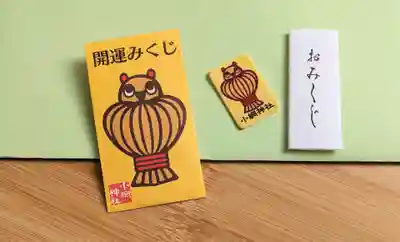 開運みくじ
小網
神社
小網神社
おみくじ